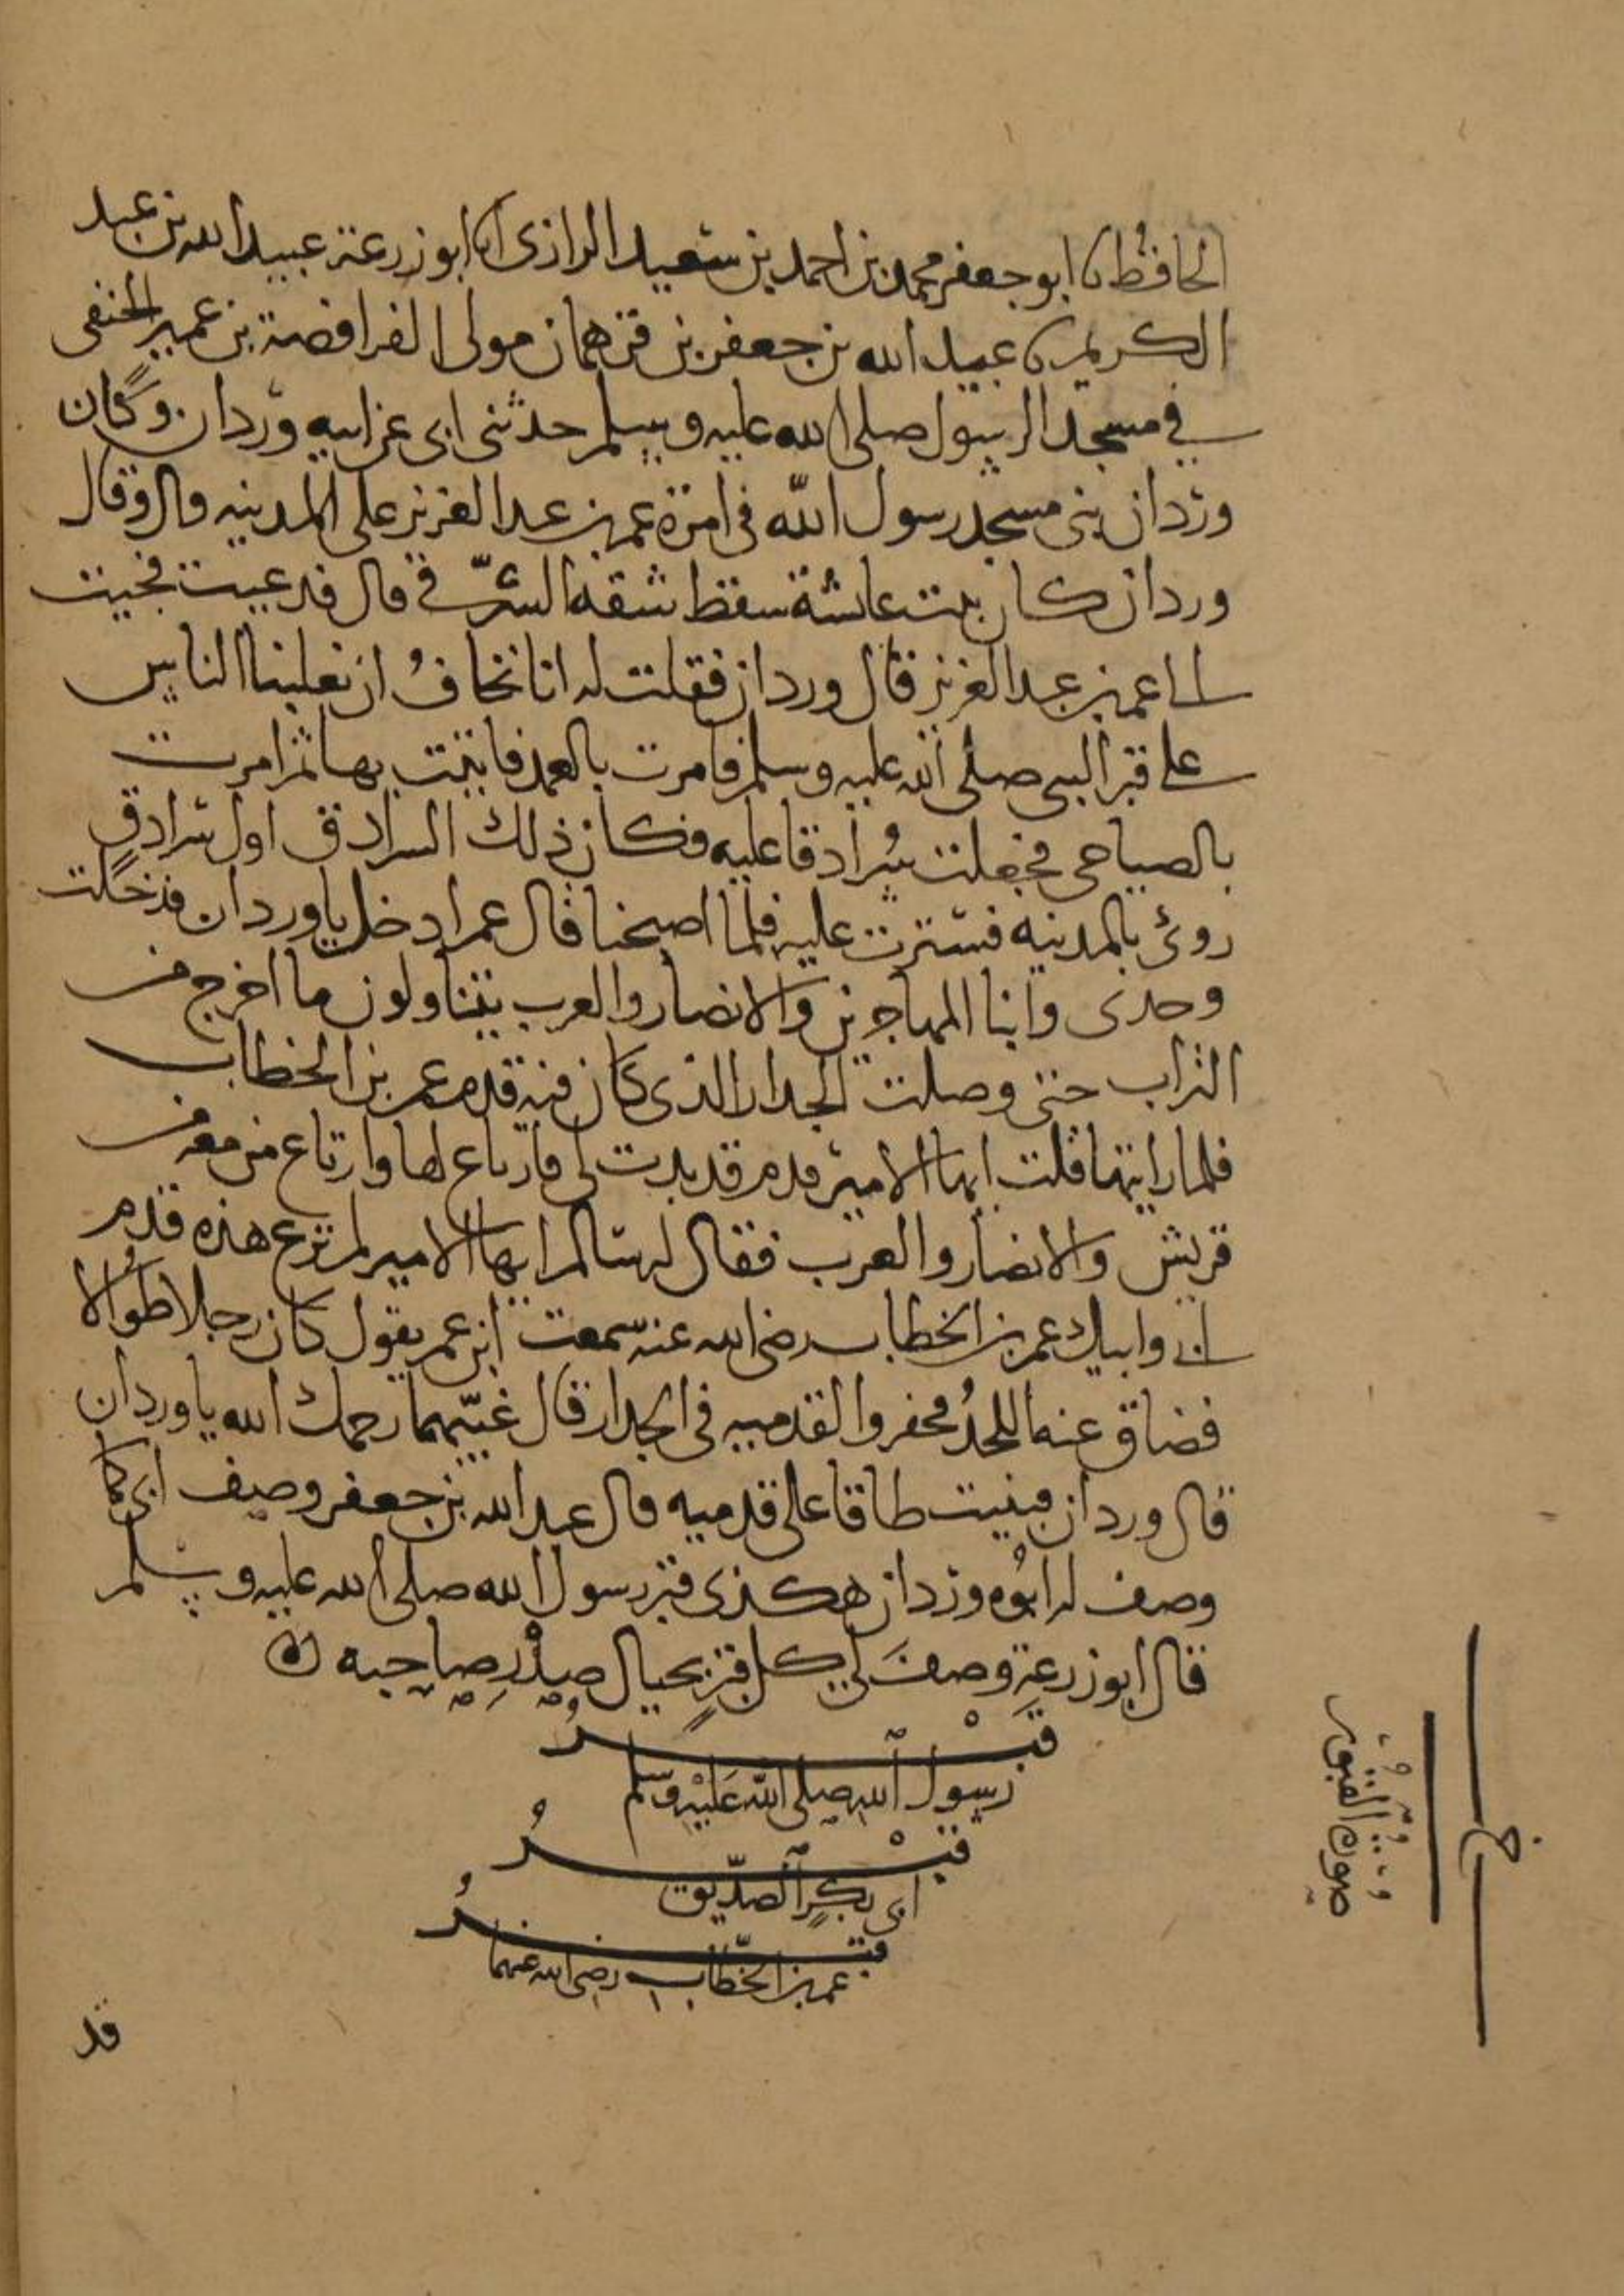 الحافظ نا ابو جعفر محمد بن احمد بن سعيد الرازى نا ابو زرعة عبيد الله بن عبد
الكريم نا عبيد الله بن جعفر بن قرهمان مولى الفرافصة بن عمير الحنفى
في مسجد الرسول صلى الله عليه وسلم حدثنى ابى عن ابيه وردان وكان
وردان بنى مسجد رسول الله فى امرة عمر بن عبد العزيز على المدينه قال وقال
وردان كان بيت عائشة سقط شقه الشرقي قال فدعيت فجيت
الى عمر بن عبد العزيز قال وردان فقلت له انا نخاف ان تغلبنا الناس
على قبر النبى صلى الله عليه وسلم فامرت بالعمد فاتيت بها ثم امرت
بالصياصى فجعلت سرادقا عليه فكان ذلك السرادق اول سرادق
روئ بالمدينه فسترت عليه فلما اصبحنا قال عمر ادخل ياوردان فدخلت
وحدى وابنا المهاجرين والانصار والعرب يتناولون ما اخرج من
التراب حتى وصلت الجدار الذى كان فيه قدم عمر بن الخطاب
فلما رايتها قلت ايها الامير قدم قد بدت لى فارتاع لها وارتاع من معه من
قريش والانصار والعرب فقال له سالم ايها الامير لم ترع هذه قدم
ابى وابيك عمر بن الخطاب رضى الله عنه سمعت ابن عمر يقول كان رجلا طوالا
فضاق عنه اللحد فحفروا لقدميه فى الجدار قال غيبهما رحمك الله ياوردان
قال وردان فبنيت طاقا على قدميه قال عبد الله بن جعفر وصف ابى كما
وصف له ابوه وردان هكذى قبر رسول الله صلى الله عليه وسلم
قال ابو زرعة وصف لي كل قبر بحيال صدر صاحبه
قبر
رسول الله صلى الله عليه وسلم
قبر
ابى بكر الصديق
قبر
عمر بن الخطاب رضى الله عنهما
صورة القبور
قد